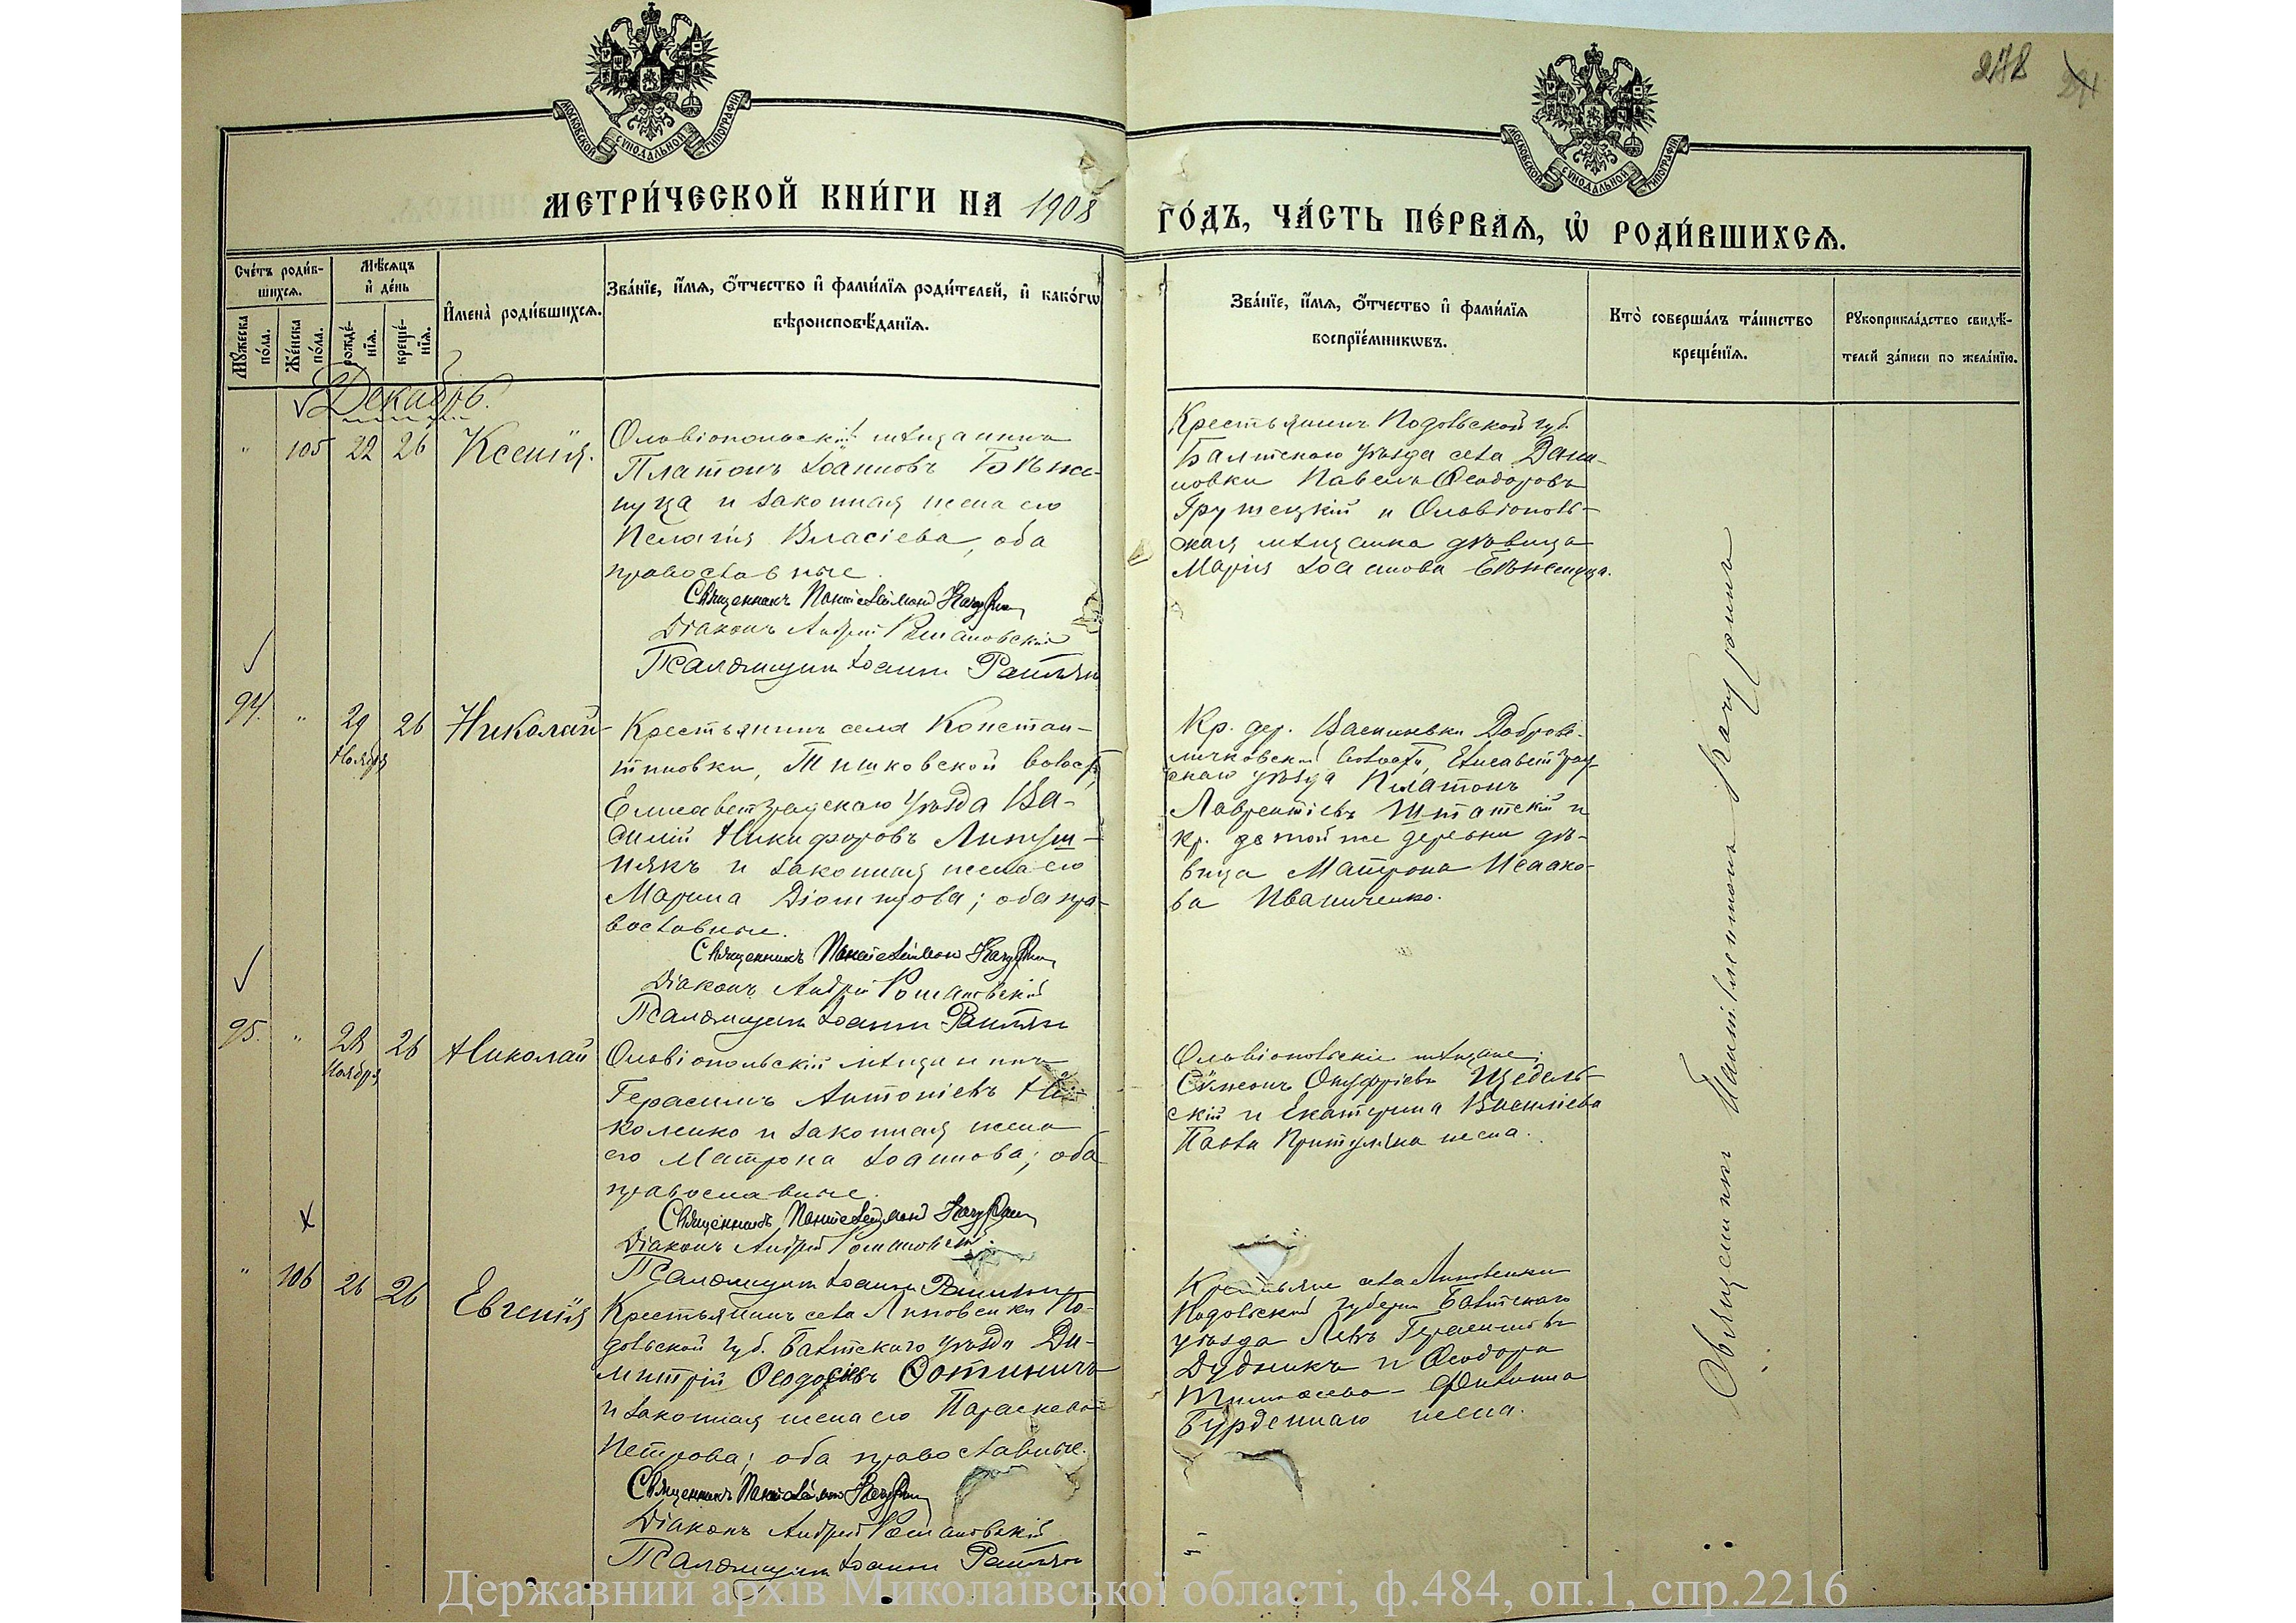 278
МОСКОВСКОЙ СѴНОДАЛЬНОЙ ТИПОГРАФІИ
МОСКОВСКОЙ СѴНОДАЛЬНОЙ ТИПОГРАФІИ
МЕТРИ́ЧЕСКОЙ КНИ́ГИ НА 1908
ГО́ДЪ, ЧА́СТЬ ПЕ́РВАѦ, Ѡ РОДИ́ВШИХСѦ.
Сче́тъ роди́в-
шихсѧ.
Мѣ́сѧцъ
и де́нь
Мꙋ́жеска
по́ла.
Же́нска
по́ла.
рожде́-
нїѧ.
креще́-
нїѧ.
Имена̀ роди́вшихсѧ.
Зва́нїе, и́мѧ, о́тчество и фами́лїѧ роди́телей, и како́гѡ
вѣроисповѣ́данїѧ.
Зва́нїе, и́мѧ, о́тчество и фами́лїѧ
воспрїе́мникѡвъ.
Кто̀ соверша́лъ та́инство
креще́нїѧ.
Рꙋкоприкла́дство свидѣ́-
телей за́писи по жела́нїю.
Декабрь.
" 105 22 26 Ксенія.
Ольвіопольскій мѣщанинъ
Платонъ Іоанновъ Бѣже-
нуца и законная жена его
Пелагія Власіева, оба
православные.
Священникъ Пантелеимонъ
Діаконъ Андрей Романовскій
Псаломщикъ Іоаннъ
Крестьянинъ Подольской губ.
Балтскаго уѣзда села Дани-
ловки Павелъ Ѳеодоровъ
Грушецкій и Ольвіополь-
ская мѣщанка дѣвица
Марія Іоаннова Бѣженуца.
94. " 29 26 Николай
Ноября
Крестьянинъ села Констан-
тиновки, Тишковской волости,
Елисаветградскаго уѣзда Ва-
силій Никифоровъ
и законная жена его
Марина; оба пра-
вославные.
Священникъ Пантелеимонъ
Діаконъ Андрей Романовскій
Псаломщикъ Іоаннъ
Кр. дер. Васильевки Доброве-
личковской волости, Елисаветград-
скаго уѣзда Платонъ
Лаврентіевъ Штатскій и
кр. той же деревни дѣ-
вица Матрона Исаако-
ва Иваниченко.
95. " 28 26 Николай
Ноября
Ольвіопольскій мѣщанинъ
Герасимъ Антоніевъ Ни-
коленко и законная жена
его Матрона Іоаннова; оба
православные.
Священникъ Пантелеимонъ
Діаконъ Андрей Романовскій
Псаломщикъ Іоаннъ
Ольвіопольскіе мѣщане:
Сѵмеонъ Онуфріевъ Щедель-
скій и Екатерина Васильева
Павла Притуляка жена.
" 106 26 26 Евгенія
Крестьянинъ села Липовеньки По-
дольской губ. Балтскаго уѣзда Ди-
митрій Ѳеодосіевъ
и законная жена его Параскева
Петрова; оба православные.
Священникъ Пантелеимонъ
Діаконъ Андрей Романовскій
Псаломщикъ Іоаннъ
Крестьяне села Липовеньки
Подольской губерн. Балтскаго
уѣзда Левъ Герасимовъ
Дудникъ и Ѳеодора
Тимоѳеева Филиппа
жена.
Священникъ Пантелеимонъ
Державний архів Миколаївської області, ф.484, оп.1, спр.2216